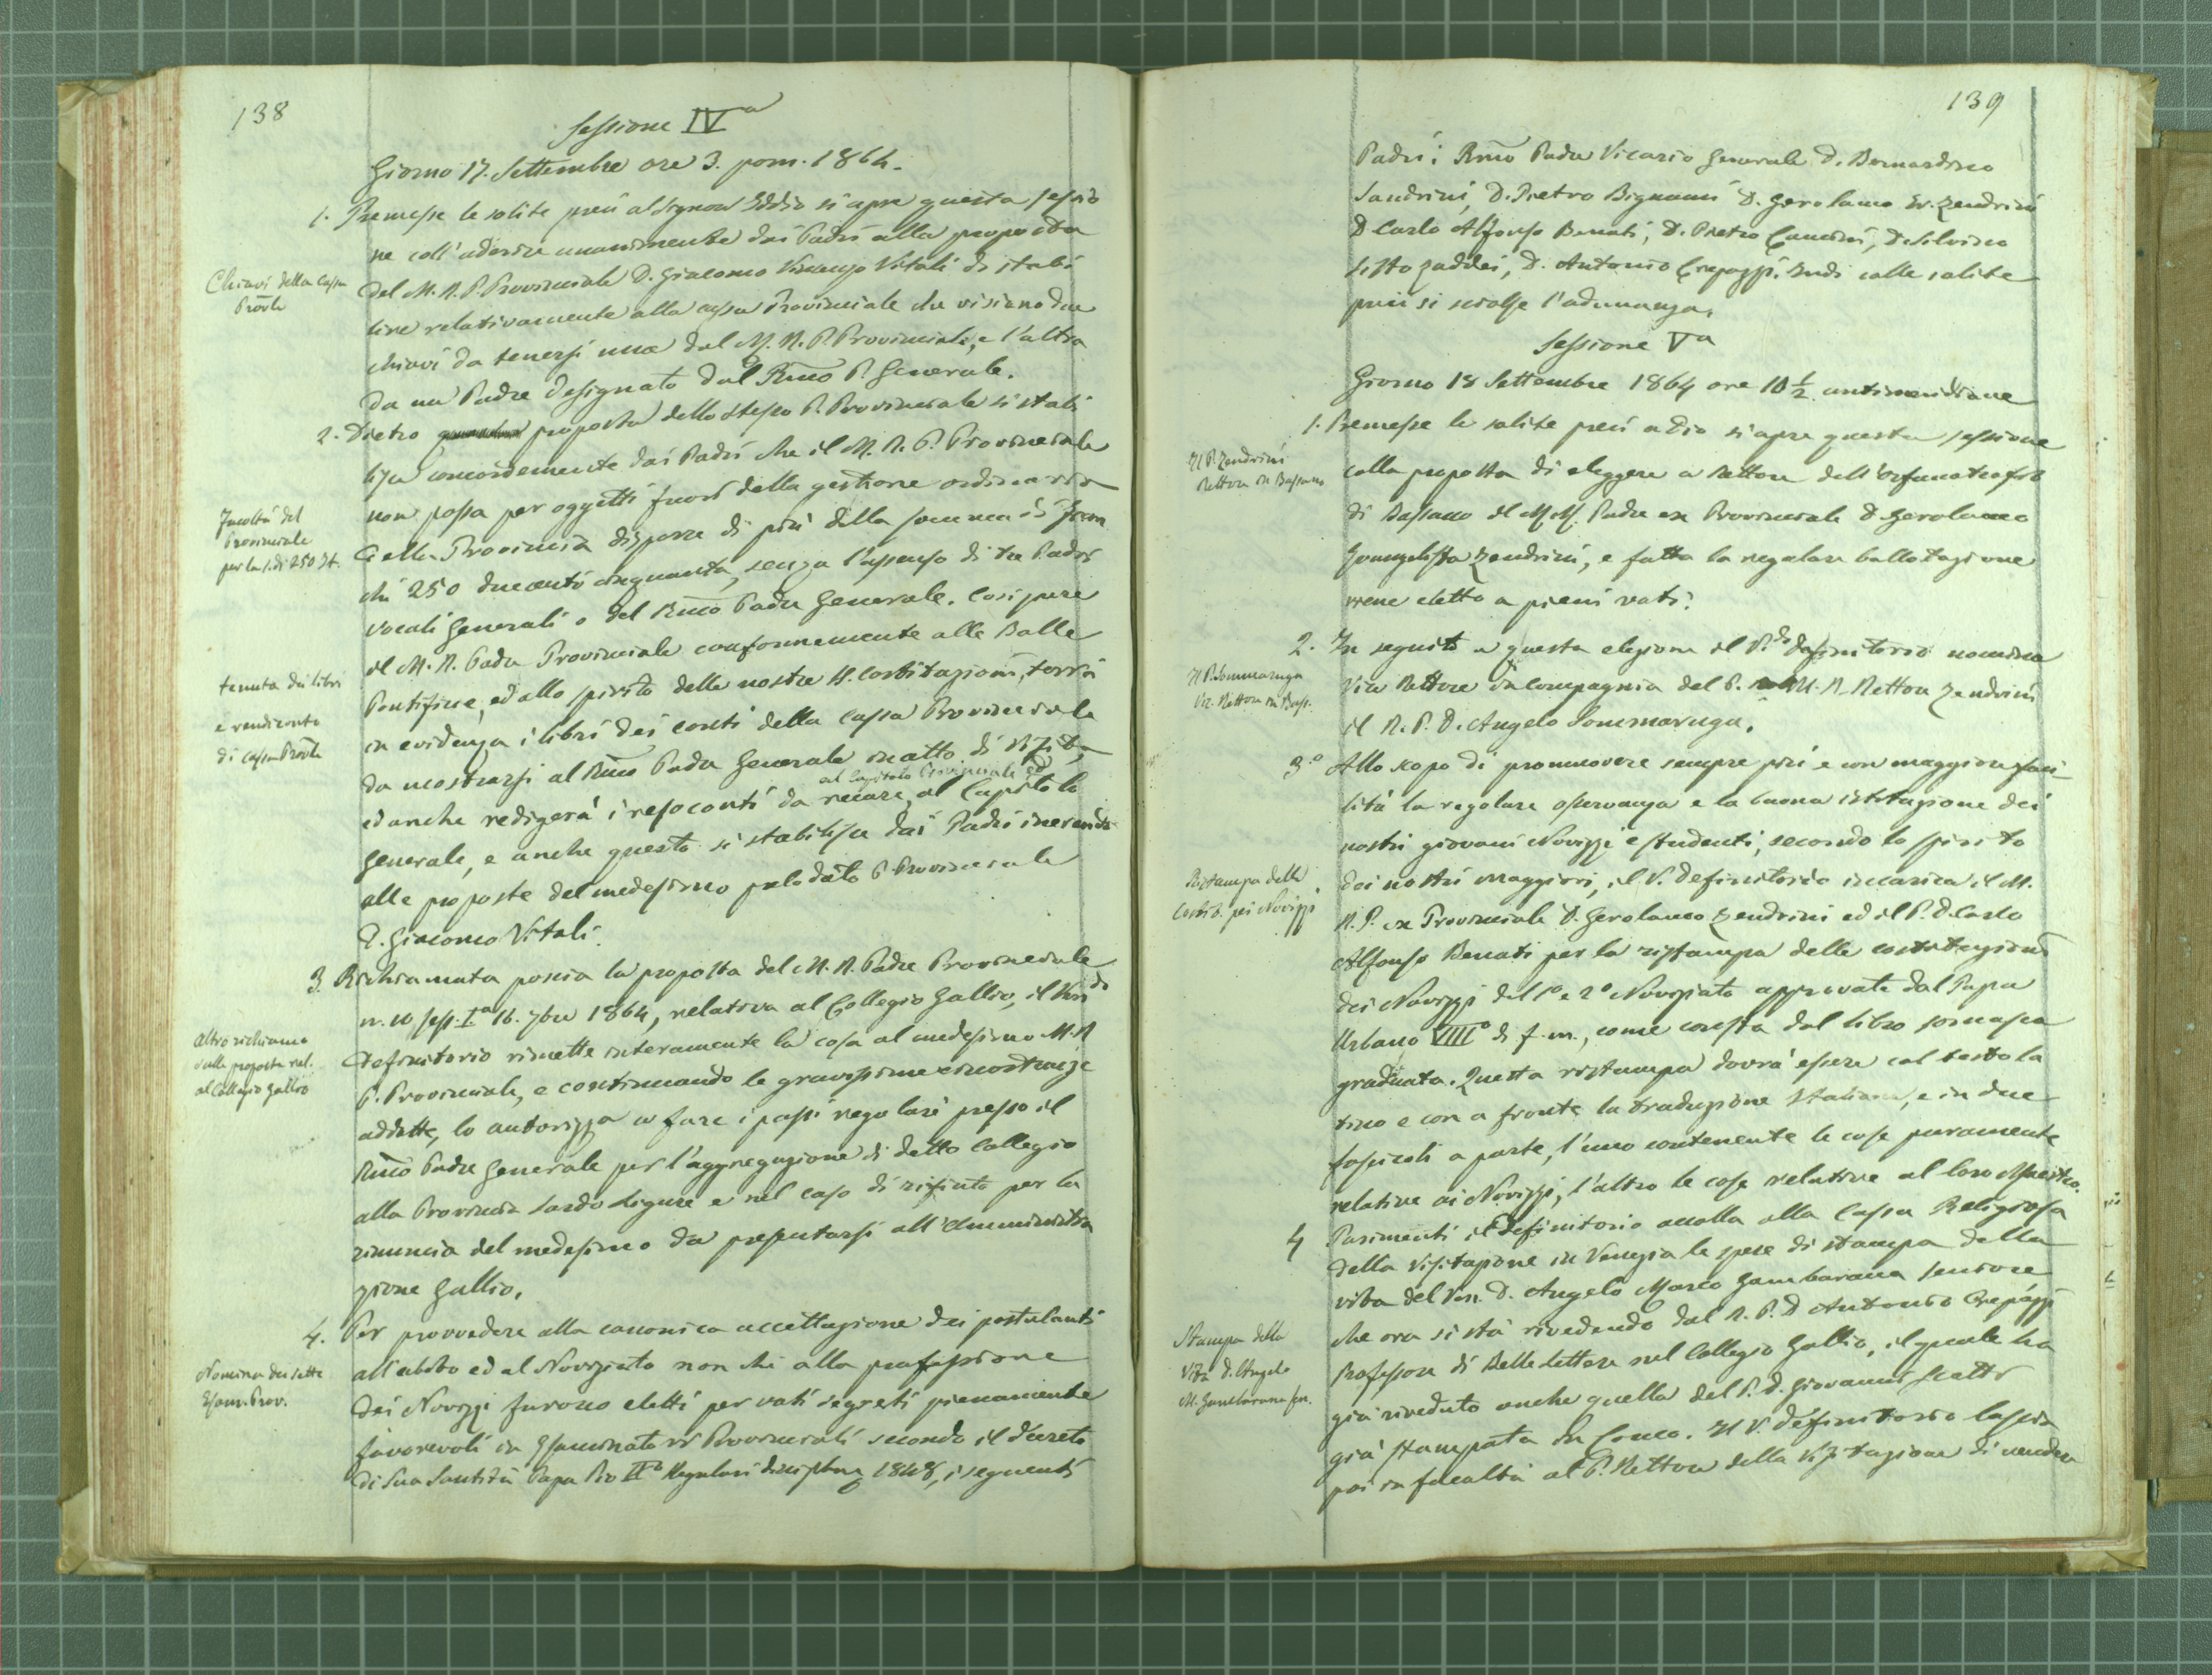 138
Sessione IVa
Giorno 17. Settembre ore 3. pom. 1864.
1. Premesse le solite preci al Signor Iddio si apre questa sessio
ne coll'aderire unanimente dai Padri alla proposta
Chiavi della Cassa
Provle
del M. R. P. Provinciale D. Giacomo Vincenzo Vitali di stabi
lire relativamente alla cassa Provinciale che vi siano due
chiavi da tenersi una dal M. R. P. Provinciale, e l'altra
da un Padre designato dal Rmo P. Generale.
2. Dietro proposta dello stesso P. Provinciale si stabi
lisce concordemente dai Padri che il M. R. P. Provinciale
non possa per oggetti fuori della gestione ordinaria
Facoltà del
Provinciale
per la s. di 250 It.
della Provincia disporre di più della somma di fran
chi 250 duecento cinquanta, senza l'assenso di tre Padri
vocali Generali o del Rmo Padre Generale. Così pure
il M. R. Padre Provinciale conformemente alle Bolle
tenuta dei libri
e rendiconto
di cassa Provle
Pontificie, ed allo spirito delle nostre SS. Costituzioni, terrà
in evidenza i libri dei conti della Cassa Provinciale
da mostrarsi al Rmo Padre Generale in atto di visita,
al Capitolo Provinciale ed
ed anche redigerà i resoconti da recare al Capitolo
Generale, e anche questo si stabilisce dai Padri inerendo
alle proposte del medesimo prelodato P. Provinciale
D. Giacomo Vitali.
3. Richiamata poscia la proposta del M. R. Padre Provinciale
n. 10 sess. Ia 16. 7bre 1864, relativa al Collegio Gallio, il Vendo
Altro richiamo
sulle proposte rel.
al Collegio Gallio
Definitorio rimette interamente la cosa al medesimo M. R.
P. Provinciale, e continuando le gravissime circostanze
addotte, lo autorizza a fare i passi regolari presso il
Rmo Padre Generale per l'aggregazione di detto Collegio
alla Provincia Sardo Ligure e nel caso di rifiuto per la
rinuncia del medesimo da presentarsi all'Amministra
zione Gallio.
4. Per provvedere alla canonica accettazione dei postulanti
Nomina dei sette
Esam. Prov.
all'abito ed al Noviziato non chè alla professione
dei Novizzi furono eletti per voti segreti pienamente
favorevoli in Esaminatori Provinciali secondo il decreto
di Sua Santità Papa Pio IX Regulari disciplinae 1848, i seguenti
139
Padri: Rmo Padre Vicario Generale D. Bernardino
Sandrini, D. Pietro Bignami D. Gerolamo Ev. Zendrini
D. Carlo Alfonso Benati, D. Pietro Camini, D. Silvino
Sisto Zaddei, D. Antonio Crepazzi. Indi colle solite
preci si sciolse l'adunanza.
Sessione Va
Giorno 18 Settembre 1864 ore 10 1/2 antimeridiane
1. Premesse le solite preci a Dio si apre questa sessione
Il P. Zendrini
Rettore in Bassano
colla proposta di eleggere a Rettore dell'Orfanotrofio
di Bassano il M. R. Padre ex Provinciale D. Gerolamo
Evangelista Zendrini, e fatta la regolare ballotazione
viene eletto a pieni voti.
2. In seguito a questa elezione il V.do Definitorio nomina
Il P. Sommaruga
Vic. Rettore in Bass.
Vice Rettore in compagnia del P. M. R. Rettore Zendrini
il R. P. D. Angelo Sommaruga.
3.o Allo scopo di promuovere sempre più e con maggiore faci-
lità la regolare osservanza e la buona istituzione dei
nostri giovani Novizzi e studenti, secondo lo spirito
Ristampa delle
Costit. pei Novizzi
dei nostri maggiori, il V. Definitorio incarica il M.
R. P. ex Provinciale D. Gerolamo Zendrini ed il P. D. Carlo
Alfonso Benati per la ristampa delle costituzioni
dei Novizzi del 1o e 2o Noviziato approvate dal Papa
Urbano VIIIo di f. m., come consta dal libro somasca
graduata. Questa ristampa dovrà essere col testo la
tino e con a fronte la traduzione Italiana, e in due
fascicoli a parte, l'uno contenente le cose puramente
relative ai Novizzi, l'altro le cose relative al loro Maestro.
4 Parimenti il Definitorio accolla alla Cassa Religiosa
della Visitazione in Venezia le spese di stampa della
vita del Ven. D. Angelo Marco Gambarana seniore
Stampa della
Vita D. Angelo
M. Gambarana sen.
che ora si sta rivedendo dal R. P. D. Antonio Crepazzi
Professore di Belle Lettere nel Collegio Gallio, il quale ha
già riveduto anche quella del P. D. Giovanni Scotti
già stampata in Como. Il V. Definitorio lascia
poi in facoltà al P. Rettore della Visitazione di vendere